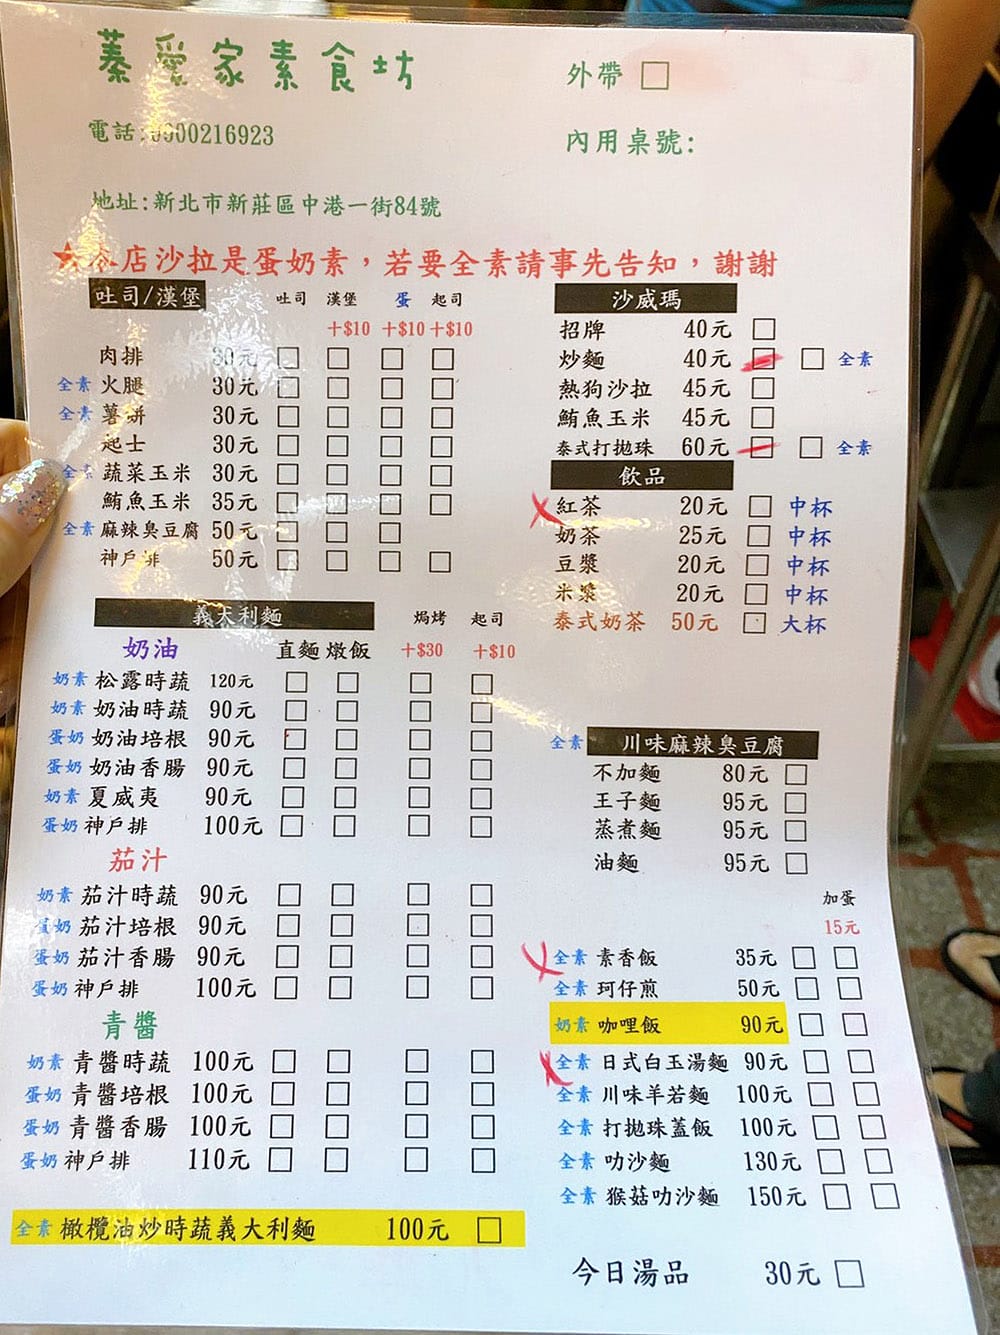 蓁愛家素食坊
外帶 □
電話:0900216923
內用桌號:
地址:新北市新莊區中港一街84號
★本店沙拉是蛋奶素，若要全素請事先告知，謝謝
吐司/漢堡 吐司 漢堡 蛋 起司
+$10 +$10 +$10
肉排 30元 □ □ □ □
全素 火腿 30元 □ □ □ □
全素 薯餅 30元 □ □ □ □
起士 30元 □ □ □ □
全素 蔬菜玉米 30元 □ □ □ □
鮪魚玉米 35元 □ □ □ □
全素 麻辣臭豆腐 50元 □ □ □
神戶排 50元 □ □ □ □
義大利麵 焗烤 起司
奶油 直麵 燉飯 +$30 +$10
奶素 松露時蔬 120元 □ □ □ □
奶素 奶油時蔬 90元 □ □ □ □
蛋奶 奶油培根 90元 □ □ □ □
蛋奶 奶油香腸 90元 □ □ □ □
奶素 夏威夷 90元 □ □ □ □
蛋奶 神戶排 100元 □ □ □ □
茄汁
奶素 茄汁時蔬 90元 □ □ □ □
蛋奶 茄汁培根 90元 □ □ □ □
蛋奶 茄汁香腸 90元 □ □ □ □
蛋奶 神戶排 100元 □ □ □ □
青醬
奶素 青醬時蔬 100元 □ □ □ □
蛋奶 青醬培根 100元 □ □ □ □
蛋奶 青醬香腸 100元 □ □ □ □
蛋奶 神戶排 110元 □ □ □ □
全素 橄欖油炒時蔬義大利麵 100元 □
沙威瑪
招牌 40元 □
炒麵 40元 □ □ 全素
熱狗沙拉 45元 □
鮪魚玉米 45元 □
泰式打拋珠 60元 □ □ 全素
飲品
紅茶 20元 □ 中杯
奶茶 25元 □ 中杯
豆漿 20元 □ 中杯
米漿 20元 □ 中杯
泰式奶茶 50元 □ 大杯
全素 川味麻辣臭豆腐
不加麵 80元 □
王子麵 95元 □
蒸煮麵 95元 □
油麵 95元 □
加蛋
15元
全素 素香飯 35元 □ □
全素 珂仔煎 50元 □ □
奶素 咖哩飯 90元 □ □
全素 日式白玉湯麵 90元 □ □
全素 川味羊若麵 100元 □ □
全素 打拋珠蓋飯 100元 □ □
全素 叻沙麵 130元 □ □
全素 猴菇叻沙麵 150元 □ □
今日湯品 30元 □